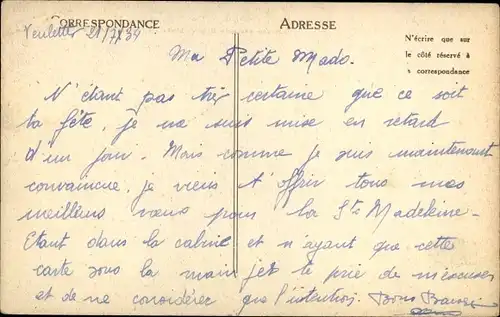 CORRESPONDANCE
ADRESSE
Veulettes 21/7/34
N'écrire que sur
le côté réservé à
a correspondance
Ma Petite Mado.
N'étant pas très certaine que ce soit
ta fête, je me suis mise en retard
d'un jour. Mais comme je suis maintenant
convaincue, je viens t'offrir tous mes
meilleurs vœux pour la Ste Madeleine -
Etant dans la cabine et n'ayant que cette
carte sous la main je te prie de m'excuser
et de ne considérer que l'intention. Bons Baisers